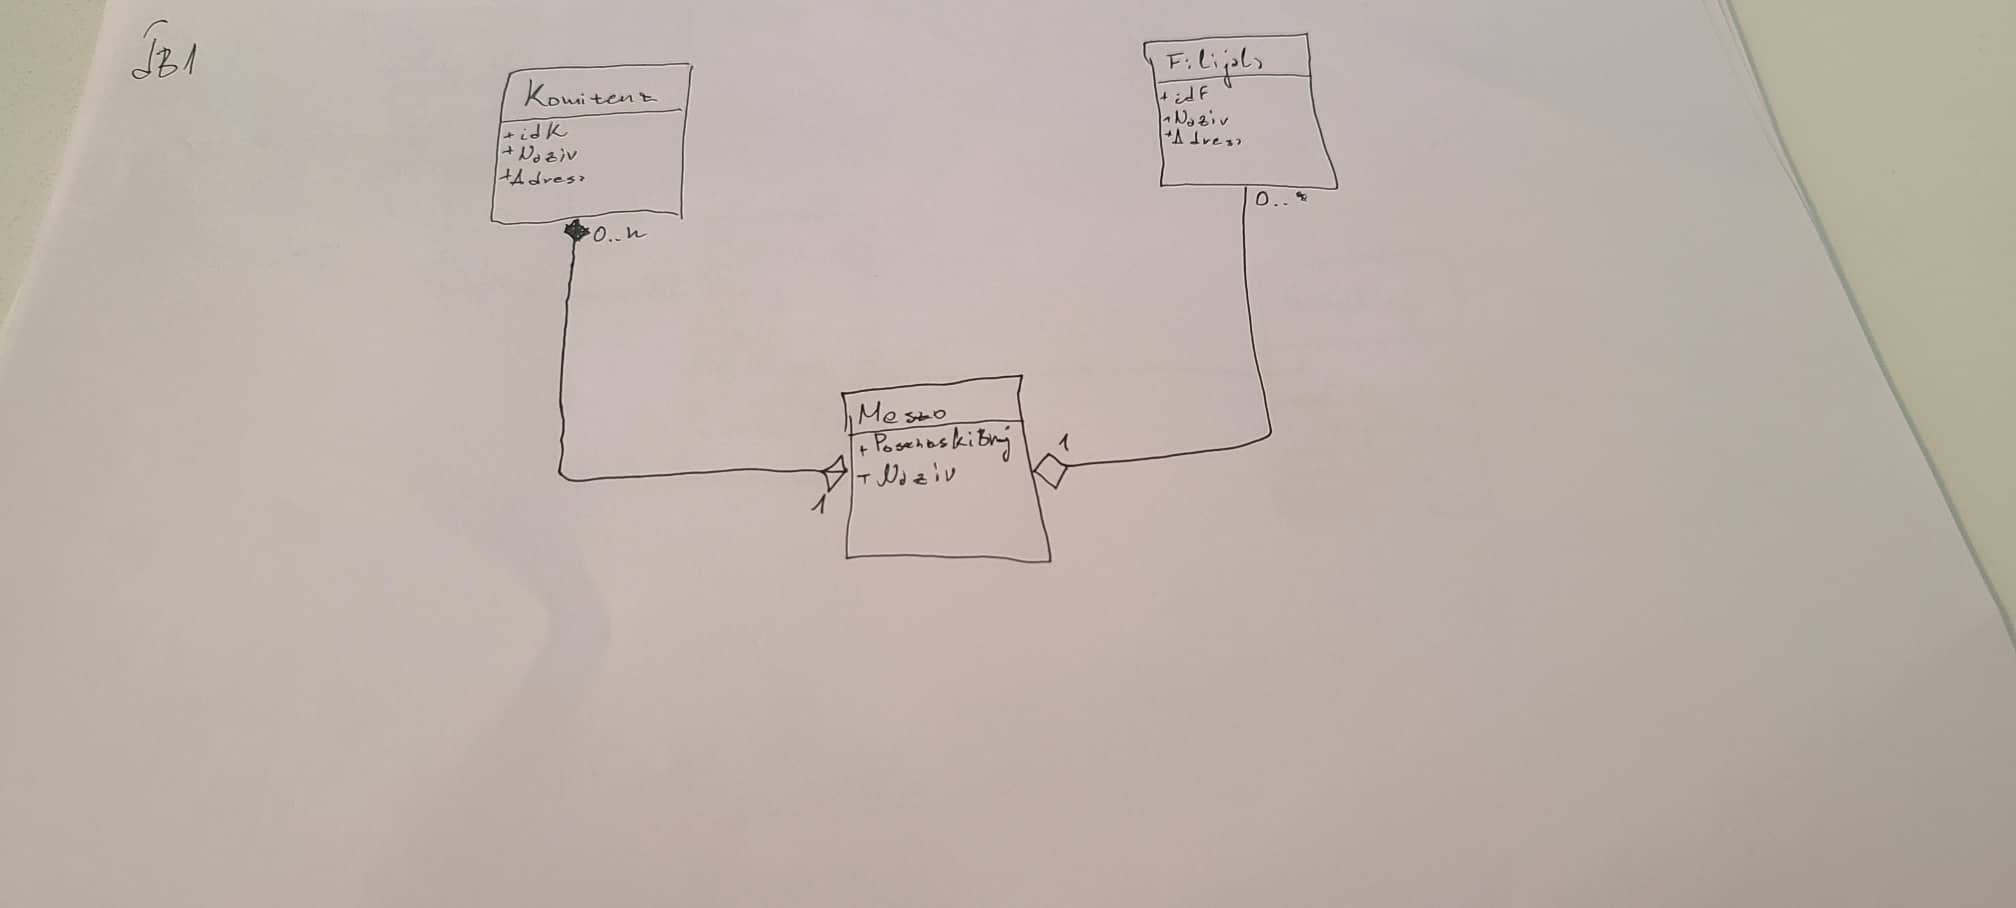 JB1
Komitent
+idK
+Naziv
+Adresa
0..n
Filijala
+idF
+Naziv
+Adresa
0..*
Mesto
+PostanskiBroj
+Naziv
1
1